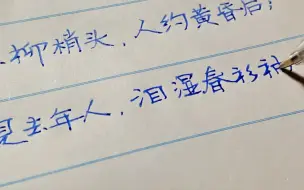 柳梢头，人约黄昏后；
去年人，泪湿春衫